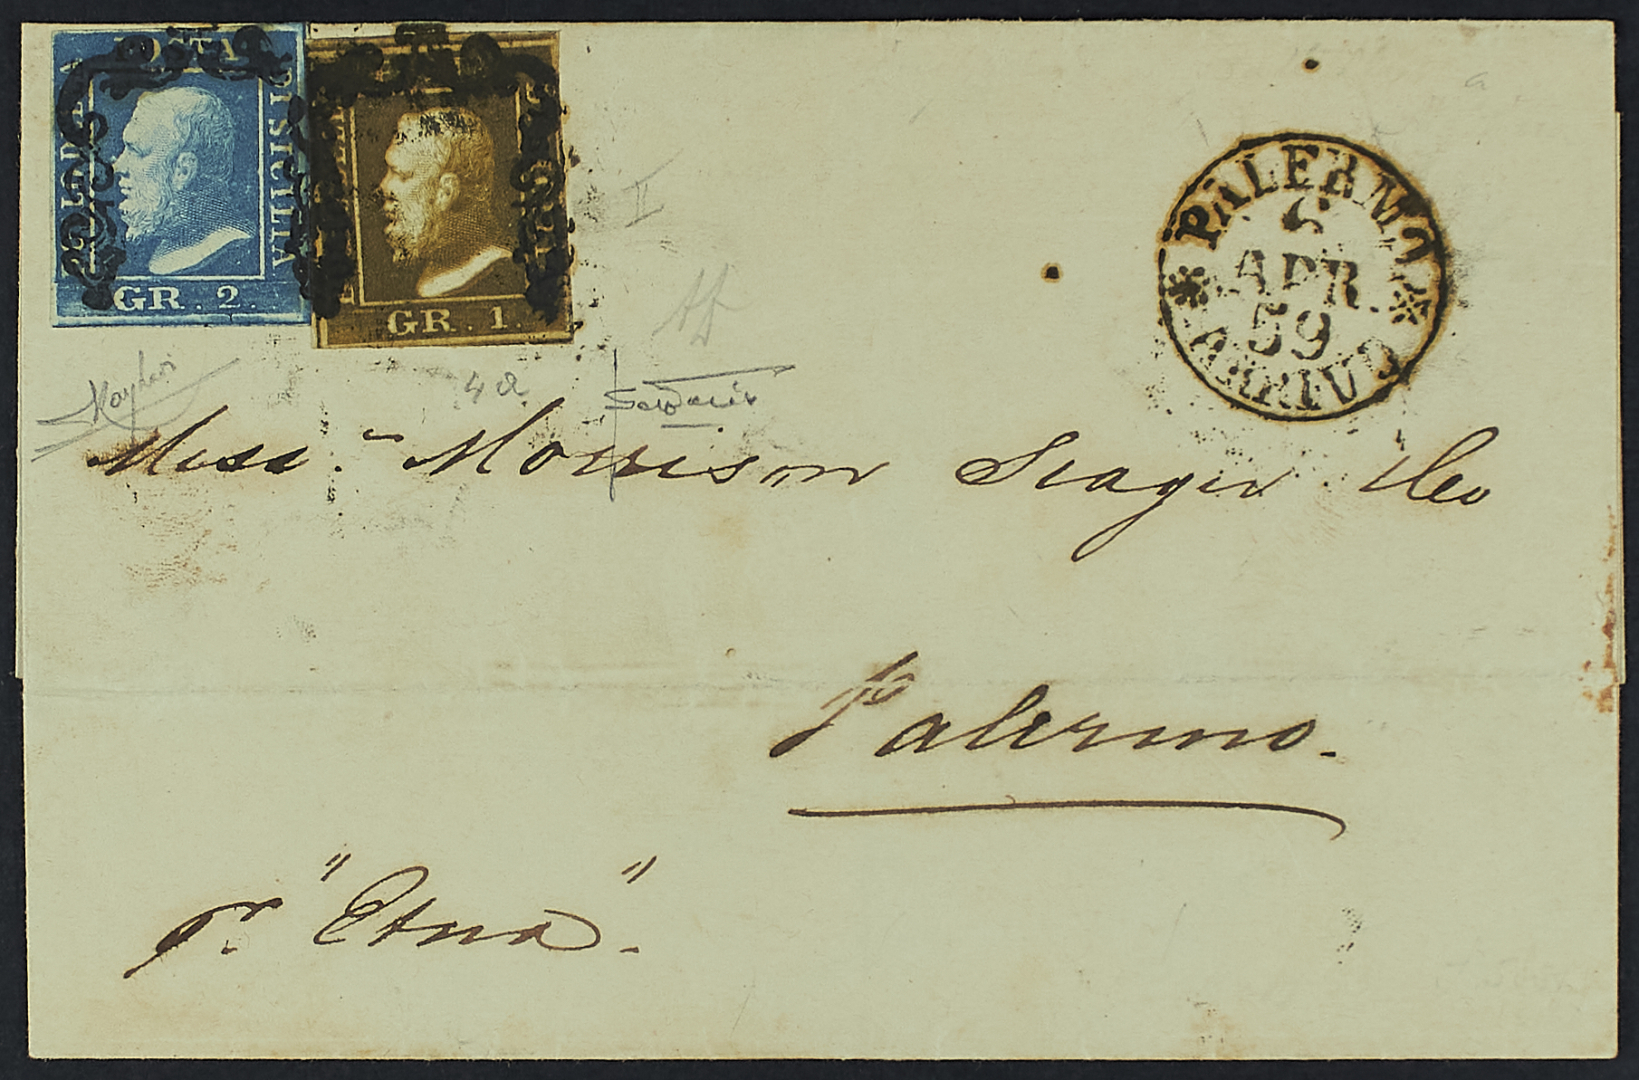 POSTA
SICILIA
GR. 2.
GR. 1.
PALERMO
6
APR.
59
ARRIVO
II
4a
Mess.rs Morrison Seager & Co
Palermo.
pr. "Etna".